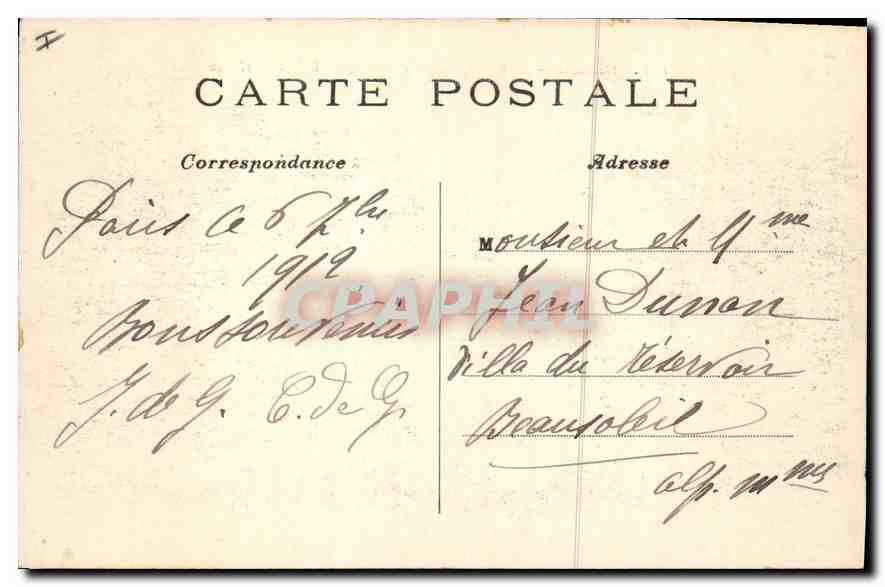 CARTE POSTALE
Correspondance
Paris le 6 7bre
1912
Bons souvenirs
J. de G. C. de G.
Adresse
Monsieur et Mme
Jean
Villa du Réservoir
Beausoleil
alp. mmes
CPAPHIL